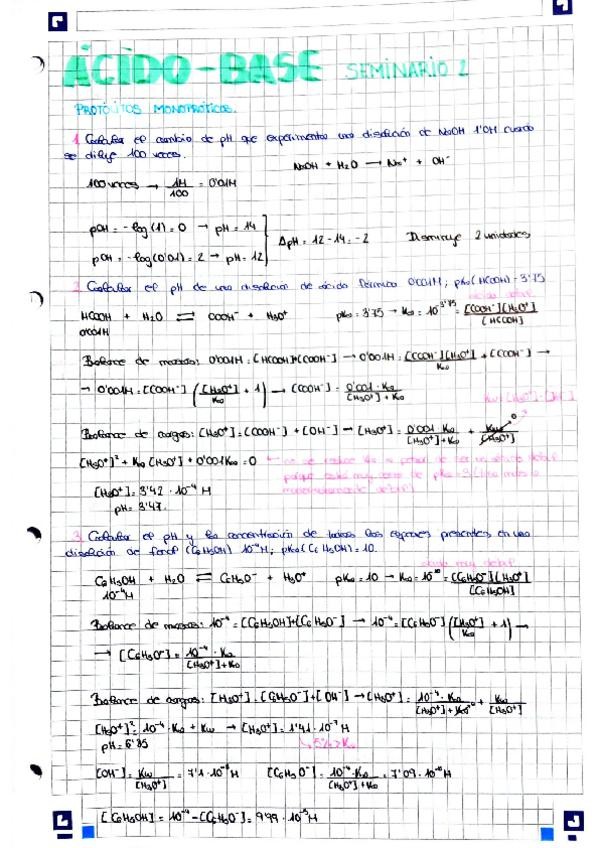 ÁCIDO-BASE SEMINARIO 1
PROTOLITOS MONOPRÓTICOS.
1. Calcular el cambio de pH que experimenta una disolución de NaOH 1'0M cuando
se diluye 100 veces.
NaOH + H₂O → Na⁺ + OH⁻
100 veces → 1M/100 = 0'01M
pOH = -log(1) = 0 → pH = 14
ΔpH = 12 - 14 = -2 Disminuye 2 unidades
pOH = -log(0'01) = 2 → pH = 12
2. Calcular el pH de una disolución de ácido fórmico 0'001M; pKa(HCOOH) = 3'75
HCOOH + H₂O ⇌ COOH⁻ + H₃O⁺ pKa = 3'75 → Ka = 10^-3'75 = [COOH⁻][H₃O⁺]/[HCOOH]
0'001M
Balance de masas: 0'001M = [HCOOH]+[COOH⁻] → 0'001M = [COOH⁻][H₃O⁺]/Ka + [COOH⁻] →
→ 0'001M = [COOH⁻] ([H₃O⁺]/Ka + 1) → [COOH⁻] = 0'001·Ka/([H₃O⁺]+Ka)
Balance de cargas: [H₃O⁺] = [COOH⁻] + [OH⁻] → [H₃O⁺] = 0'001·Ka/([H₃O⁺]+Ka) + Kw/[H₃O⁺] 0
[H₃O⁺]² + Ka[H₃O⁺] + 0'001Ka = 0
[H₃O⁺] = 3'42·10⁻⁴ M
pH = 3'47.
3. Calcular el pH y la concentración de todas las especies presentes en una
disolución de fenol (C₆H₅OH) 10⁻⁴M; pKa(C₆H₅OH) = 10.
ácido muy débil
C₆H₅OH + H₂O ⇌ C₆H₅O⁻ + H₃O⁺ pKa = 10 → Ka = 10⁻¹⁰ = [C₆H₅O⁻][H₃O⁺]/[C₆H₅OH]
10⁻⁴M
Balance de masas: 10⁻⁴ = [C₆H₅OH]+[C₆H₅O⁻] → 10⁻⁴ = [C₆H₅O⁻] ([H₃O⁺]/Ka + 1) →
→ [C₆H₅O⁻] = 10⁻⁴·Ka/([H₃O⁺]+Ka)
Balance de cargas: [H₃O⁺] = [C₆H₅O⁻]+[OH⁻] → [H₃O⁺] = 10⁻⁴·Ka/([H₃O⁺]+Ka) + Kw/[H₃O⁺]
[H₃O⁺]² = 10⁻⁴·Ka + Kw → [H₃O⁺] = 1'41·10⁻⁷ M
pH = 6'85 5% > Ka
[OH⁻] = Kw/[H₃O⁺] = 7'1·10⁻⁸ M [C₆H₅O⁻] = 10⁻⁴·Ka/([H₃O⁺]+Ka) = 7'09·10⁻⁸ M
[C₆H₅OH] = 10⁻⁴ - [C₆H₅O⁻] = 9'99·10⁻⁵ M